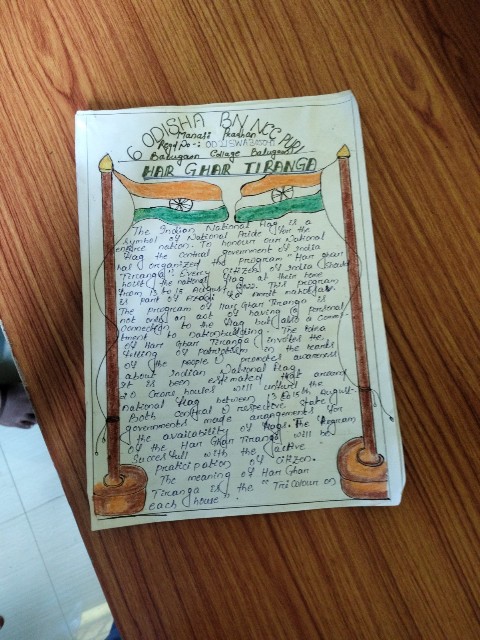 6 ODISHA BN NCC, PURI
Manasi Pradhan
Regd No -:
Balugaon College Balugaon
HAR GHAR TIRANGA
The Indian National Flag is a
symbol of National Pride for the
entire nation. To honour our National
flag the central government of India
has organized the program "Har Ghar
Tiranga". Every citizen of India should
hoist the national flag at their home
from 13 to 15 August 2022. This program
is part of Azadi Ka Amrit mahotsav.
The program of Har Ghar Tiranga is
not only an act of having a personal
connection to the flag but also a commi-
tment to nationbuilding. The idea
of Har Ghar Tiranga invokes the
feeling of patriotism in the hearts
of the people & promote awareness
about Indian National flag.
It is been estimated that around
20 crore houses will unfurd the
national flag between 13 to 15th August.
Both central & respective state
Governments made arrangements for
the availability of flags. The program
of the Har Ghar Tiranga will be
Succesfull with the active
praticipation of citizen.
The meaning of Har Ghar
Tiranga is the "Tri Colour on
each house".